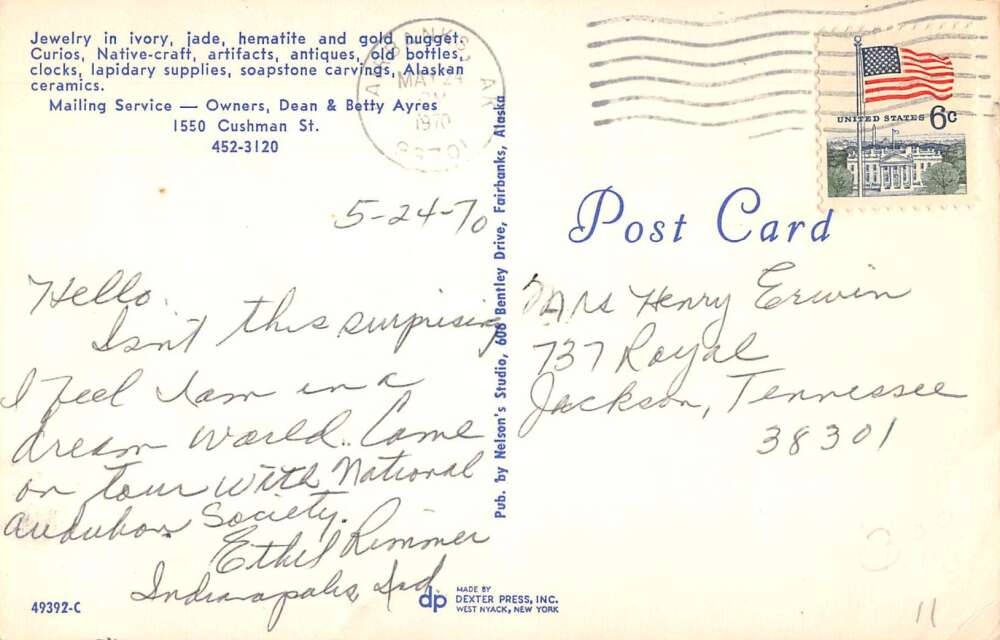 Jewelry in ivory, jade, hematite and gold nugget.
Curios, Native-craft, artifacts, antiques, old bottles,
clocks, lapidary supplies, soapstone carvings, Alaskan
ceramics.
Mailing Service — Owners, Dean & Betty Ayres
1550 Cushman St.
452-3120
FAIRBANKS, AK
MAY 24
PM
1970
99701
UNITED STATES 6c
Post Card
5-24-70
Hello
Isn't this surprising
I feel I am in a
dream world. Came
on tour with National
Audubon Society.
Ethel Rimmer
Indianapolis, Ind.
Pub. by Nelson's Studio, 606 Bentley Drive, Fairbanks, Alaska
Mrs Henry Erwin
737 Royal
Jackson, Tennessee
38301
300
49392-C
dp
MADE BY
DEXTER PRESS, INC.
WEST NYACK, NEW YORK
11